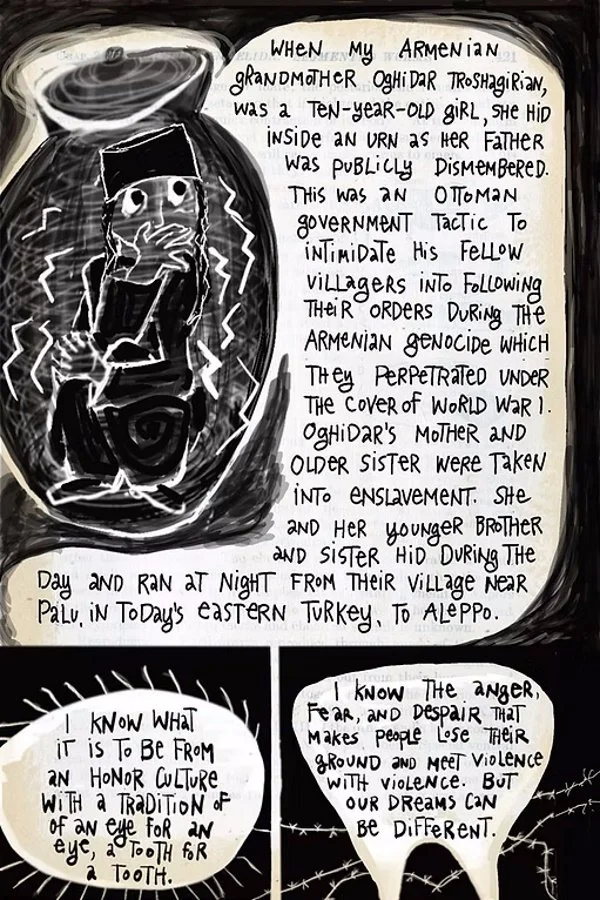 WHEN MY ARMENIAN
GRANDMOTHER OGHIDAR TROSHAGIRIAN,
WAS A TEN-YEAR-OLD GIRL, SHE HID
INSIDE AN URN AS HER FATHER
WAS PUBLICLY DISMEMBERED.
THIS WAS AN OTTOMAN
GOVERNMENT TACTIC TO
INTIMIDATE HIS FELLOW
VILLAGERS INTO FOLLOWING
THEIR ORDERS DURING THE
ARMENIAN GENOCIDE WHICH
THEY PERPETRATED UNDER
THE COVER OF WORLD WAR I.
OGHIDAR'S MOTHER AND
OLDER SISTER WERE TAKEN
INTO ENSLAVEMENT. SHE
AND HER YOUNGER BROTHER
AND SISTER HID DURING THE
DAY AND RAN AT NIGHT FROM THEIR VILLAGE NEAR
PALU, IN TODAY'S EASTERN TURKEY, TO ALEPPO.
I KNOW WHAT
IT IS TO BE FROM
AN HONOR CULTURE
WITH A TRADITION OF
OF AN EYE FOR AN
EYE, A TOOTH FOR
A TOOTH.
I KNOW THE ANGER,
FEAR, AND DESPAIR THAT
MAKES PEOPLE LOSE THEIR
GROUND AND MEET VIOLENCE
WITH VIOLENCE. BUT
OUR DREAMS CAN
BE DIFFERENT.